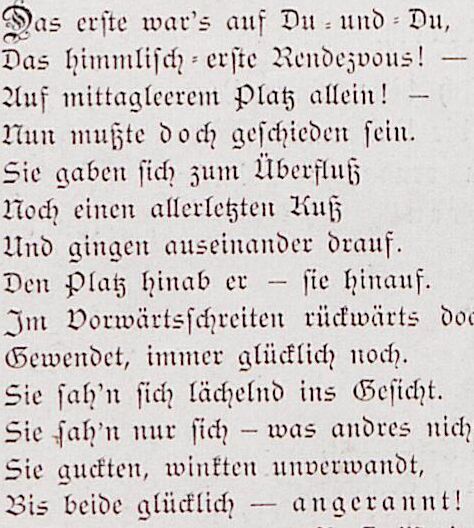 Das erste war's auf Du-und-Du,
Das himmlisch-erste Rendezvous! —
Auf mittagleerem Platz allein! —
Nun mußte doch geschieden sein.
Sie gaben sich zum Überfluß
Noch einen allerletzten Kuß
Und gingen auseinander drauf.
Den Platz hinab er — sie hinauf.
Im Vorwärtsschreiten rückwärts doc
Gewendet, immer glücklich noch.
Sie sah'n sich lächelnd ins Gesicht.
Sie sah'n nur sich — was andres nich
Sie guckten, winkten unverwandt,
Bis beide glücklich — angerannt!